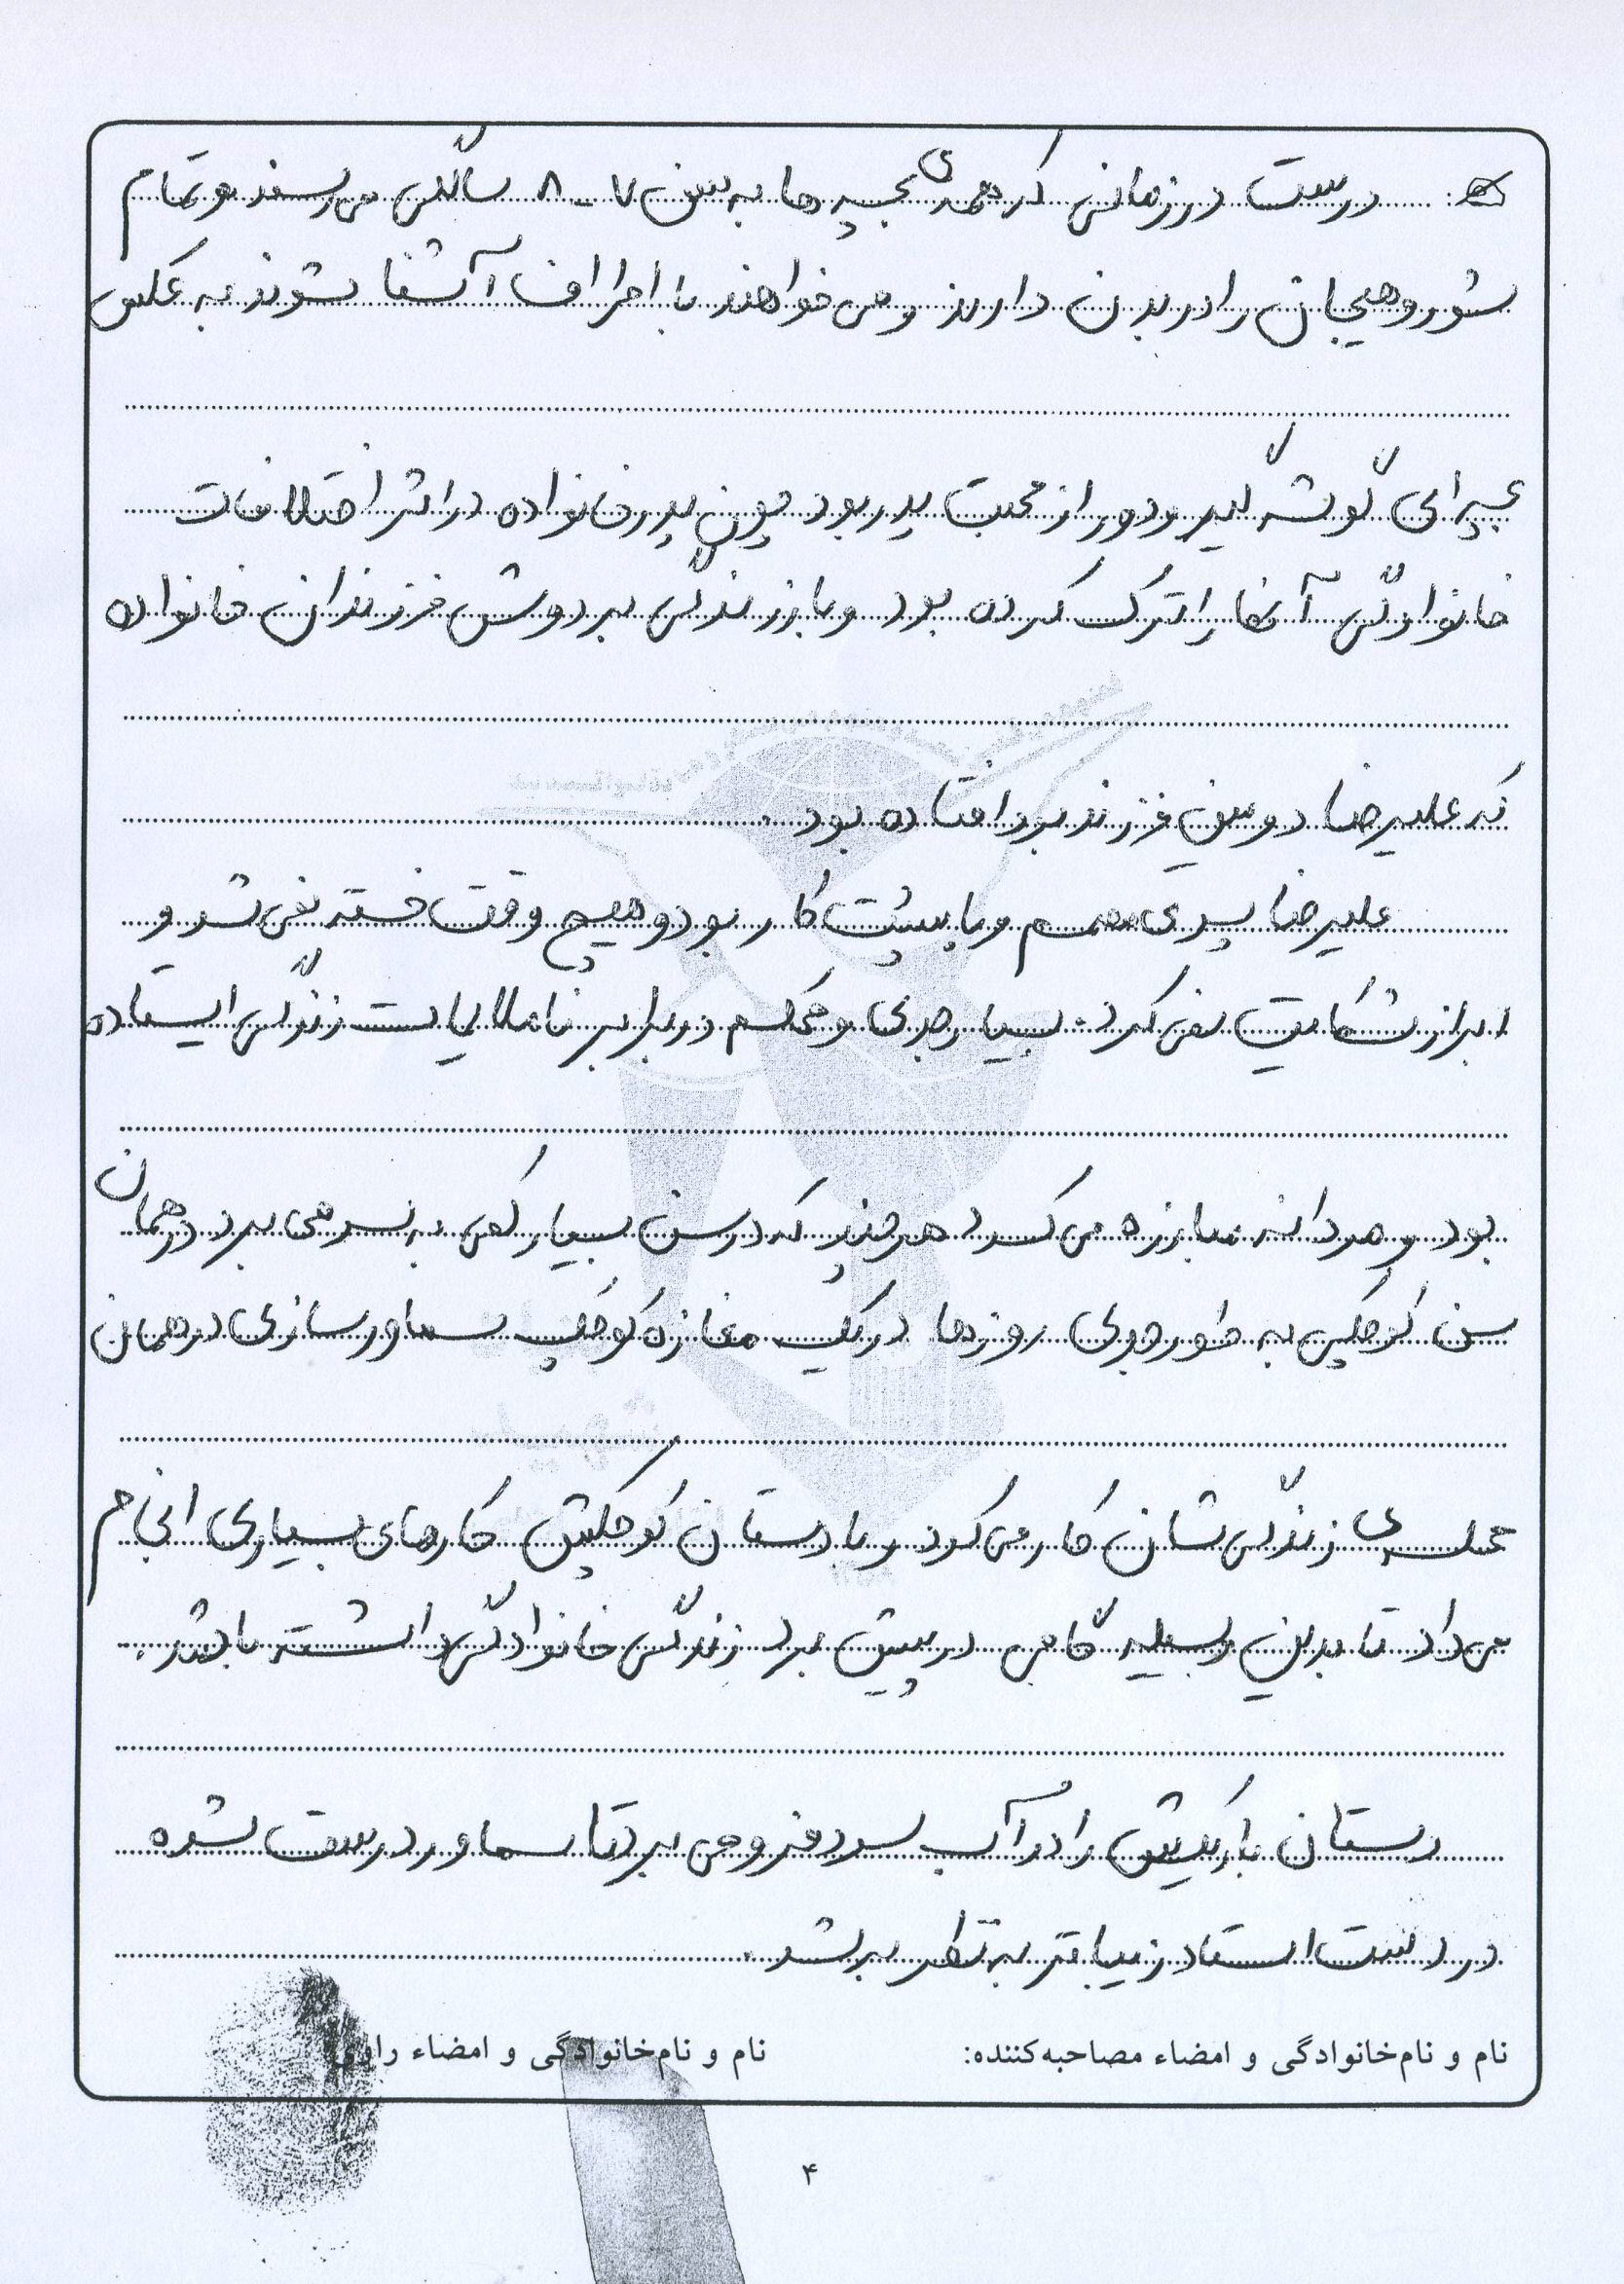 درست در زمانی که همه‌ی بچه ها به سن ۷ـ۸ سالگی می رسند و تمام
شور و هیجان را در بدن دارند و می خواهند با اطراف آشنا شوند به عکس
بچه ای گوشه گیر و دور از محبت پدر بود چون پدر خانواده در اثر اختلافات
خانوادگی آنها را ترک کرده بود و بار زندگی بر دوش فرزندان خانواده
که علیرضا دومین فرزند بود افتاده بود.
علیرضا پسری مصمم و با پشت کار بود و هیچ وقت خسته نمی شد و
ابراز شکایت نمی کرد. بسیار جدی و محکم در برابر ناملایمات زندگی ایستاده
بود و مردانه مبارزه می کرد هر چند که در سن بسیار کمی به سر می برد در همان
سن کوچکی به طور جدی روزها در یک مغازه کوچک سماور سازی در همان
محله ی زندگی شان کار می کرد و با دستان کوچکش کارهای بسیاری انجام
می داد تا بدین وسیله گامی در پیش برد زندگی خانوادگی داشته باشد.
دستان باریکش را در آب سرد فرو می برد تا سماور درست شده
در دست استاد زیباتر به نظر برسد.
نام و نام‌خانوادگی و امضاء مصاحبه‌کننده: نام و نام‌خانوادگی و امضاء راوی:
۴